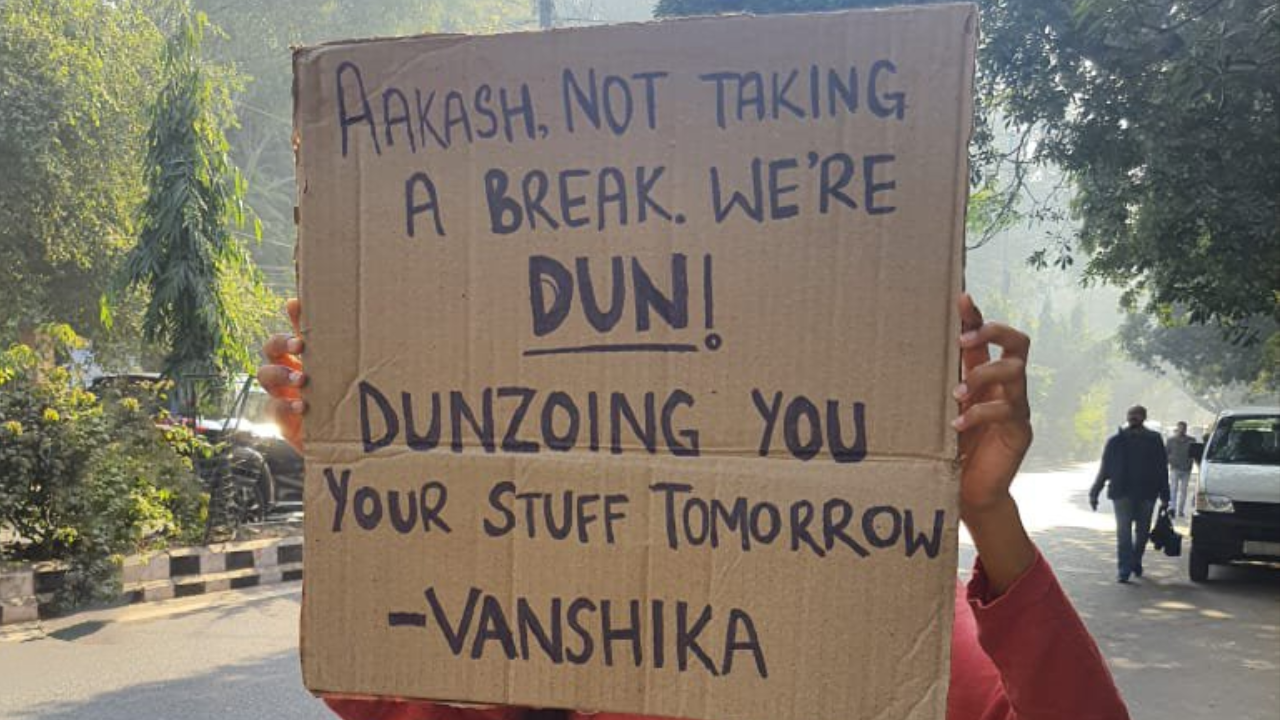 AAKASH, NOT TAKING
A BREAK. WE'RE
DUN!
DUNZOING YOU
YOUR STUFF TOMORROW
-VANSHIKA